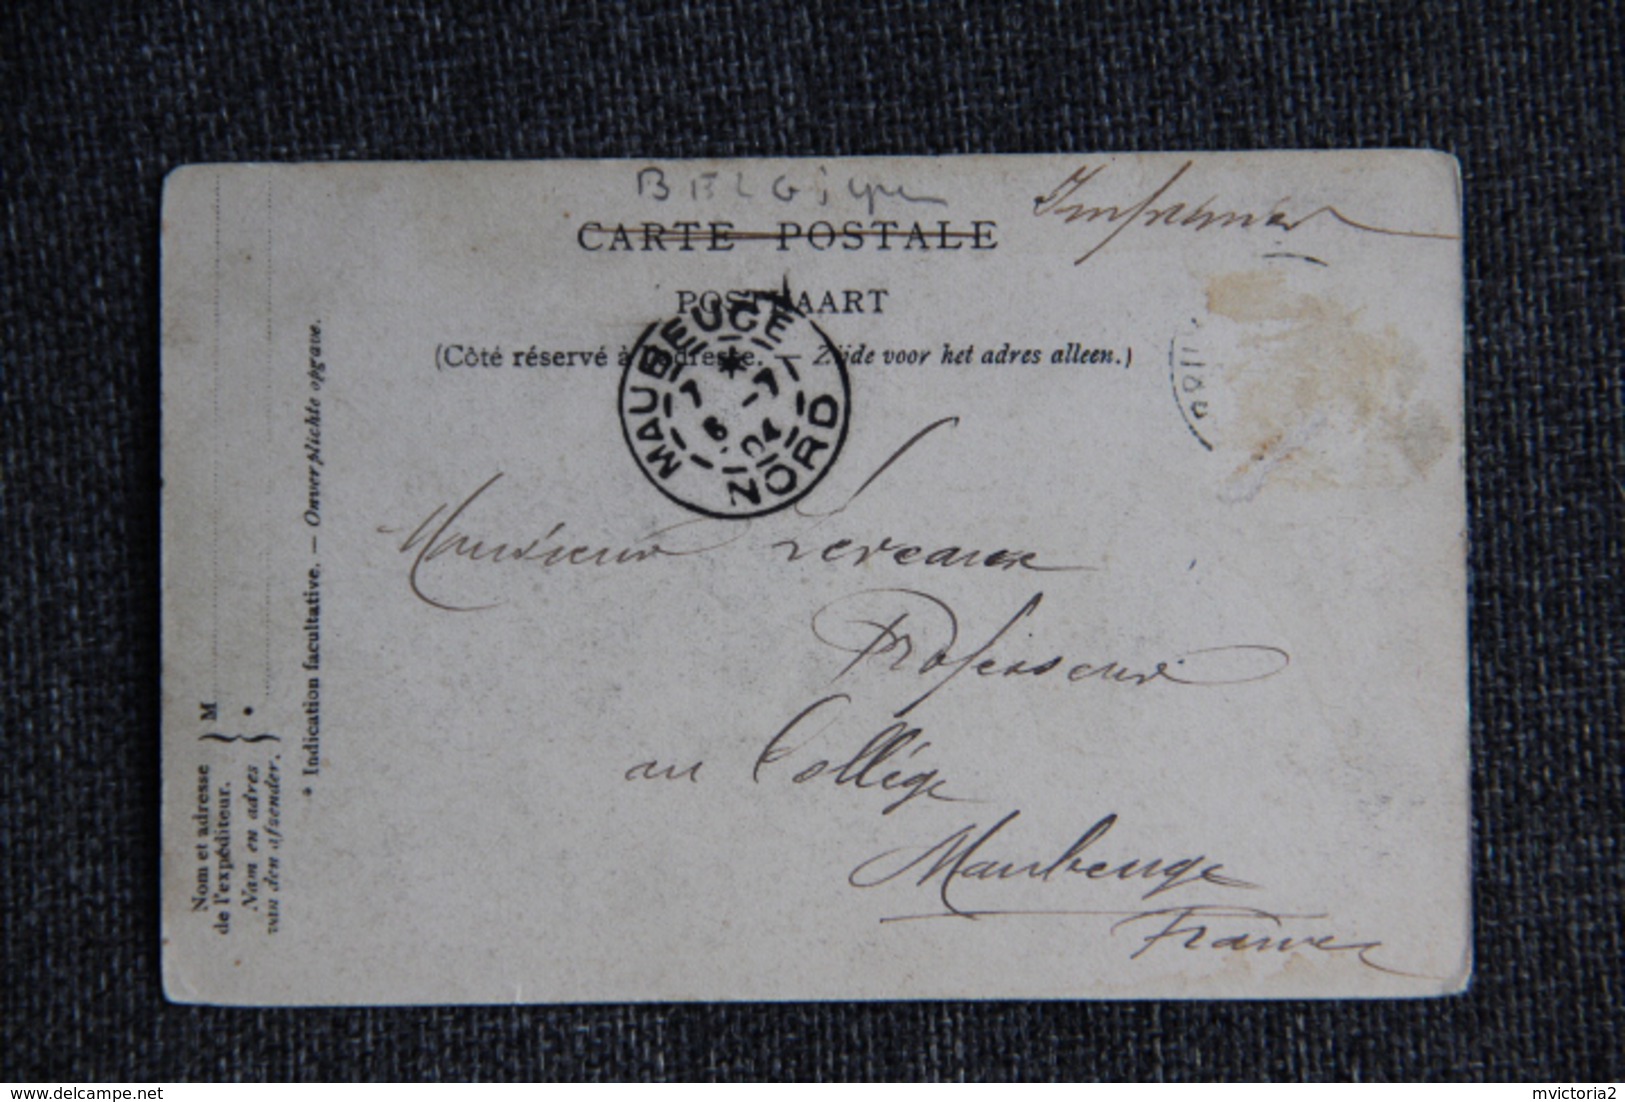 BELGique
Imprimé
CARTE POSTALE
POSTKAART
(Côté réservé à l'adresse. — Zijde voor het adres alleen.)
MAUBEUGE
7 - 7
6 04
NORD
Monsieur Leveaux
Professeur
au Collège
Maubeuge
France
Nom et adresse
de l'expéditeur.
Nam en adres
van den afzender.
M
*
* Indication facultative. — Onverplichte opgave.
delcampe.net
mvictoria2